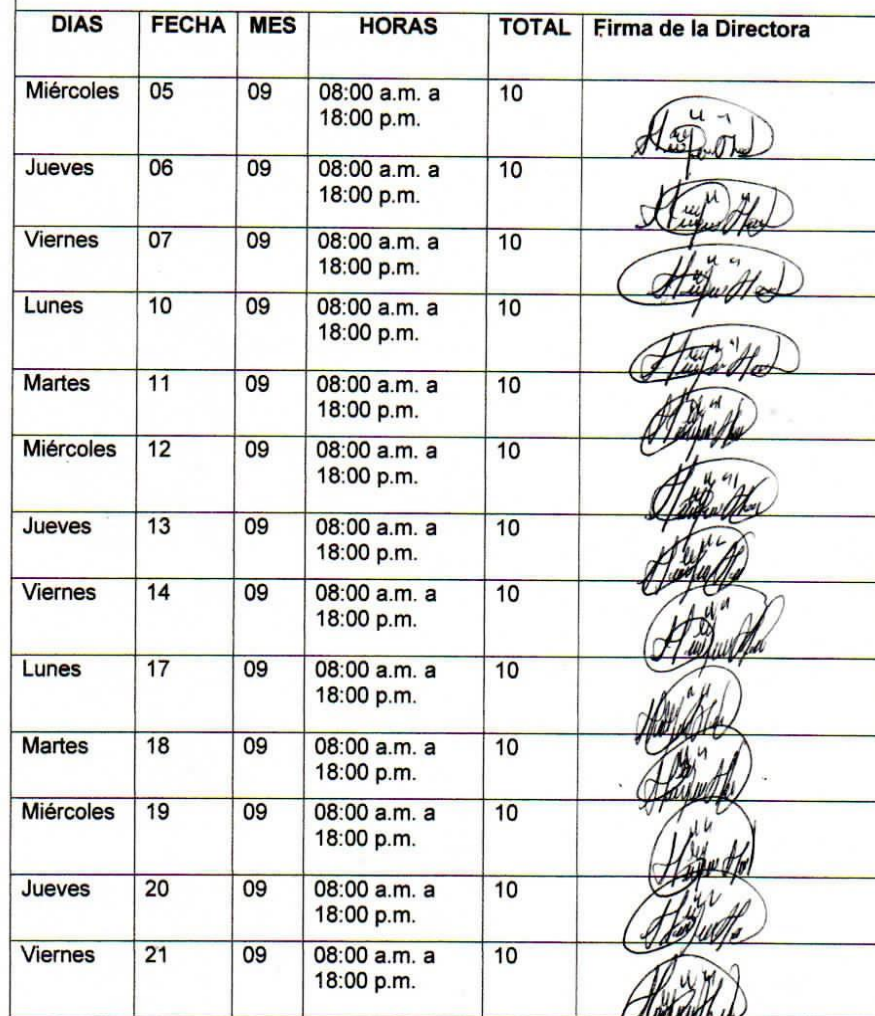 DIAS FECHA MES HORAS TOTAL Firma de la Directora
Miércoles 05 09 08:00 a.m. a 10
18:00 p.m.
Jueves 06 09 08:00 a.m. a 10
18:00 p.m.
Viernes 07 09 08:00 a.m. a 10
18:00 p.m.
Lunes 10 09 08:00 a.m. a 10
18:00 p.m.
Martes 11 09 08:00 a.m. a 10
18:00 p.m.
Miércoles 12 09 08:00 a.m. a 10
18:00 p.m.
Jueves 13 09 08:00 a.m. a 10
18:00 p.m.
Viernes 14 09 08:00 a.m. a 10
18:00 p.m.
Lunes 17 09 08:00 a.m. a 10
18:00 p.m.
Martes 18 09 08:00 a.m. a 10
18:00 p.m.
Miércoles 19 09 08:00 a.m. a 10
18:00 p.m.
Jueves 20 09 08:00 a.m. a 10
18:00 p.m.
Viernes 21 09 08:00 a.m. a 10
18:00 p.m.